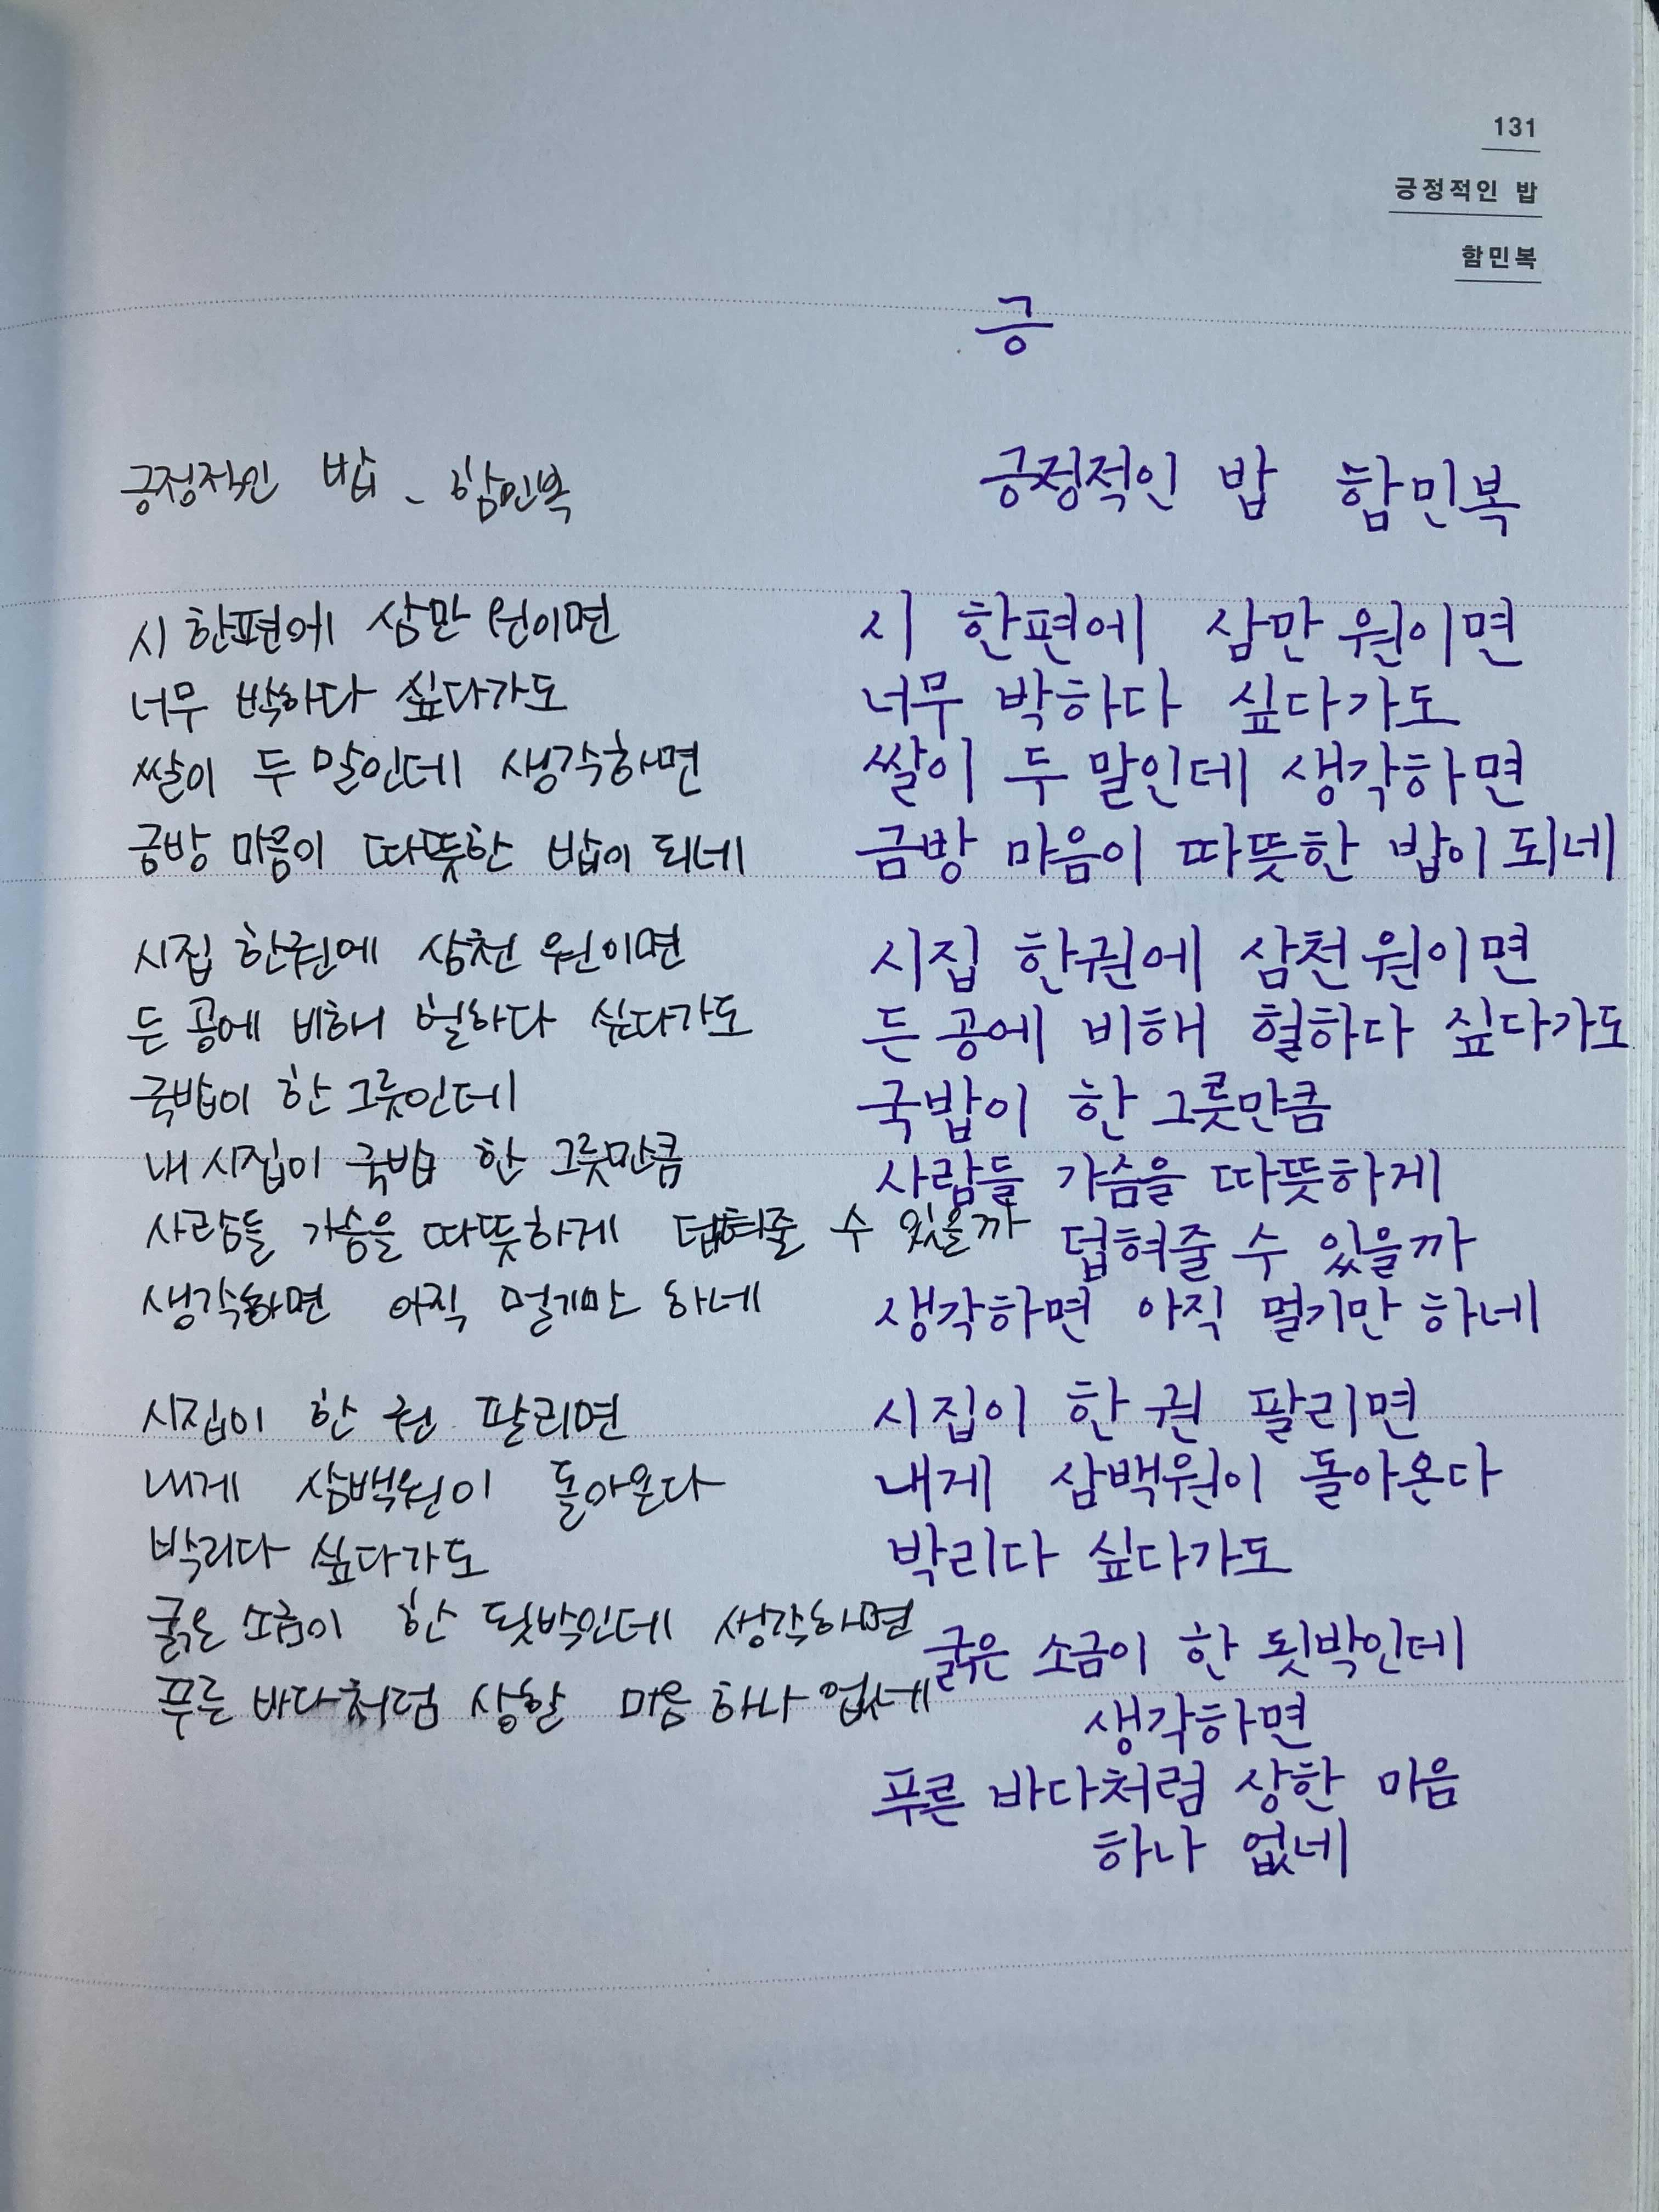 131
긍정적인 밥
함민복
긍
긍정적인 밥 - 함민복
시 한편에 삼만 원이면
너무 박하다 싶다가도
쌀이 두 말인데 생각하면
금방 마음이 따뜻한 밥이 되네
시집 한권에 삼천 원이면
든 공에 비해 헐하다 싶다가도
국밥이 한 그릇인데
내 시집이 국밥 한 그릇만큼
사람들 가슴을 따뜻하게 덥혀줄 수 있을까
생각하면 아직 멀기만 하네
시집이 한 권 팔리면
내게 삼백원이 돌아온다
박리다 싶다가도
굵은 소금이 한 됫박인데 생각하면
푸른 바다처럼 상할 마음 하나 없네
긍정적인 밥 함민복
시 한편에 삼만 원이면
너무 박하다 싶다가도
쌀이 두 말인데 생각하면
금방 마음이 따뜻한 밥이 되네
시집 한권에 삼천원이면
든 공에 비해 헐하다 싶다가도
국밥이 한 그릇만큼
사람들 가슴을 따뜻하게
덥혀줄 수 있을까
생각하면 아직 멀기만 하네
시집이 한 권 팔리면
내게 삼백원이 돌아온다
박리다 싶다가도
굵은 소금이 한 됫박인데
생각하면
푸른 바다처럼 상한 마음
하나 없네